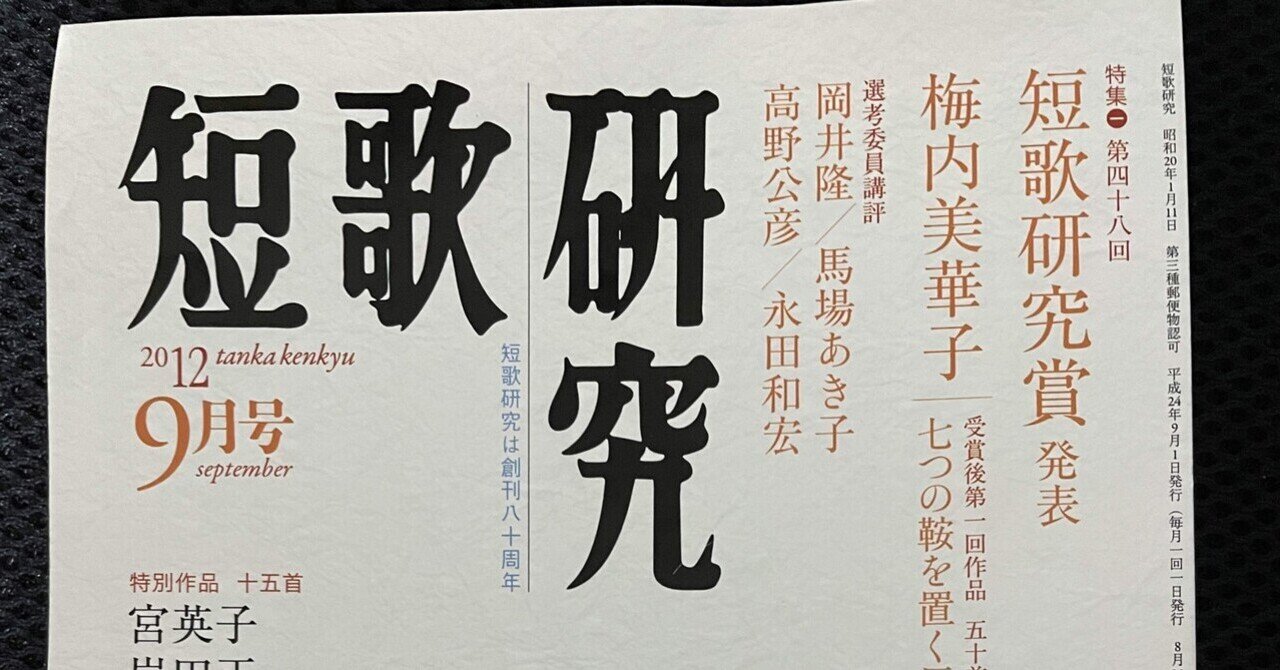 短歌研究 昭和20年1月11日 第三種郵便物認可 平成24年9月1日発行(毎月一回一日発行) 8月
特集一 第四十八回
短歌研究賞 発表
梅内美華子
受賞後第一回作品 五十首
七つの鞍を置く
選考委員講評
岡井隆/馬場あき子
高野公彦/永田和宏
短歌研究
短歌研究は創刊八十周年
2012 tanka kenkyu
9月号
september
特別作品 十五首
宮英子